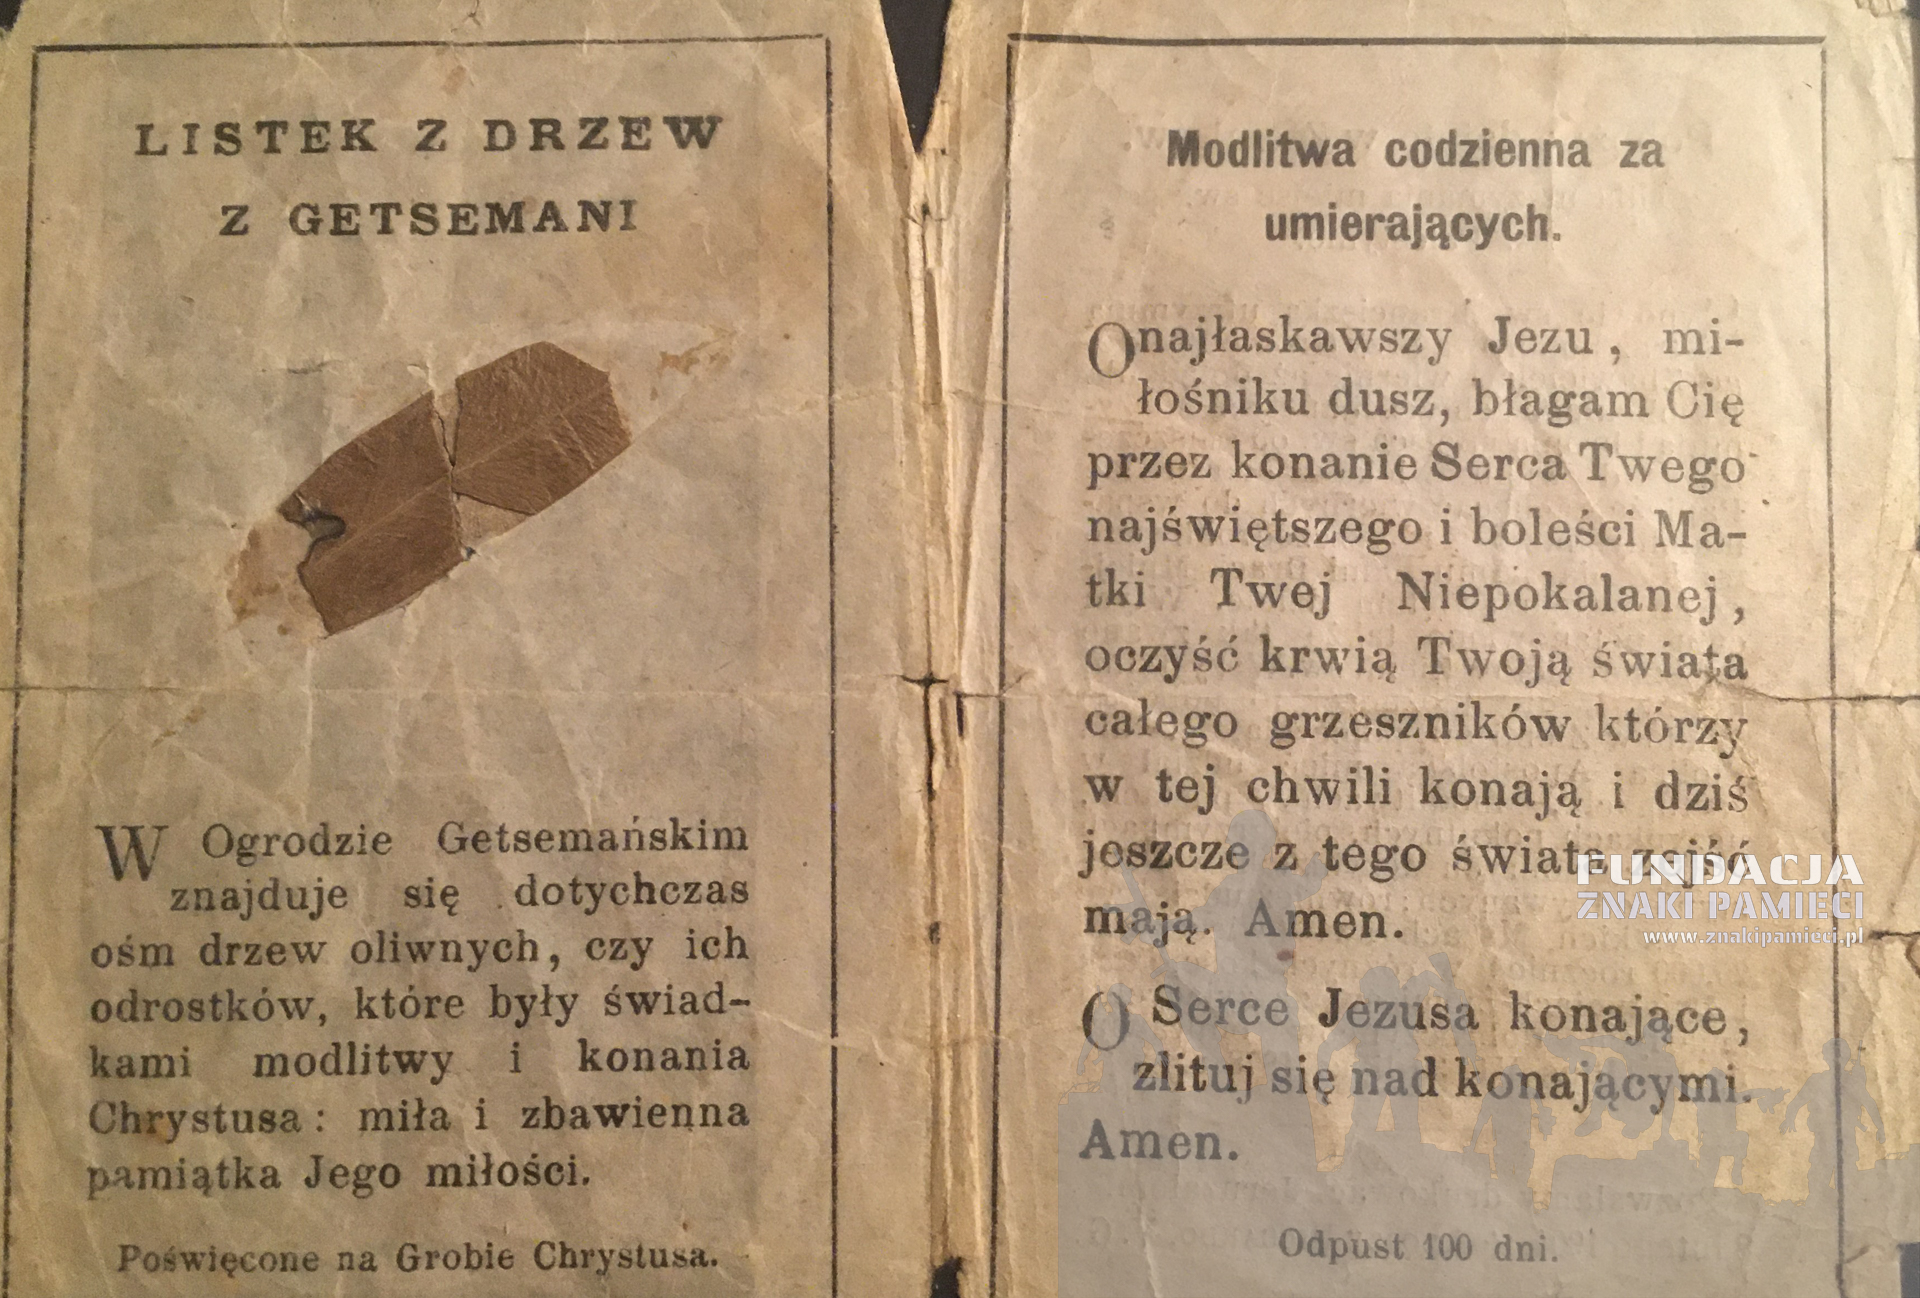 LISTEK Z DRZEW
Z GETSEMANI
W Ogrodzie Getsemańskim
znajduje się dotychczas
ośm drzew oliwnych, czy ich
odrostków, które były świad-
kami modlitwy i konania
Chrystusa: miła i zbawienna
pamiątka Jego miłości.
Poświęcone na Grobie Chrystusa.
Modlitwa codzienna za
umierających.
O najłaskawszy Jezu, mi-
łośniku dusz, błagam Cię
przez konanie Serca Twego
najświętszego i boleści Ma-
tki Twej Niepokalanej,
oczyść krwią Twoją świata
całego grzeszników którzy
w tej chwili konają i dziś
jeszcze z tego świata zejść
mają. Amen.
O Serce Jezusa konające,
zlituj się nad konającymi.
Amen.
Odpust 100 dni.
FUNDACJA
ZNAKI PAMIĘCI
www.znakipamieci.pl